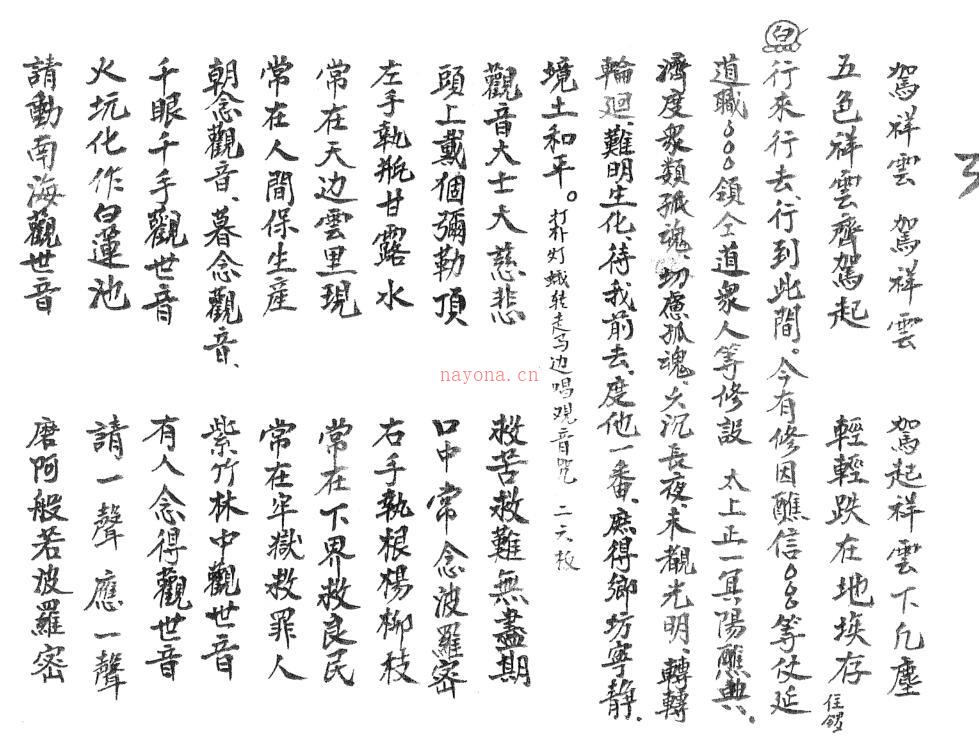 3
駕祥雲 駕祥雲 駕起祥雲下凢塵
五色祥雲齊駕起 輕輕跌在地埃存 住鑼
白
行來行去、行到此間。今有修因醮信○○○等伏延
道職○○○領仝道衆人等修設 太上正一冥陽醮典、
濟度衆類孤魂、切慮孤魂、久沉長夜、未覩光明、轉轉
輪廻、難明生化、待我前去、度他一番、庶得鄉坊寧靜、
境土和平。 打扑灯蛾转走马边唱观音咒 二六板
觀音大士大慈悲 救苦救難無盡期
頭上戴個彌勒頂 口中常念波羅密
左手執瓶甘露水 右手執根楊柳枝
常在天边雲里現 常在下界救良民
常在人間保生産 常在牢獄救罪人
朝念觀音、暮念觀音、 紫竹林中觀世音
千眼千手觀世音 有人念得觀世音
火坑化作白蓮池 請一聲應一聲
請動南海觀世音 磨阿般若波羅密
nayona.cn